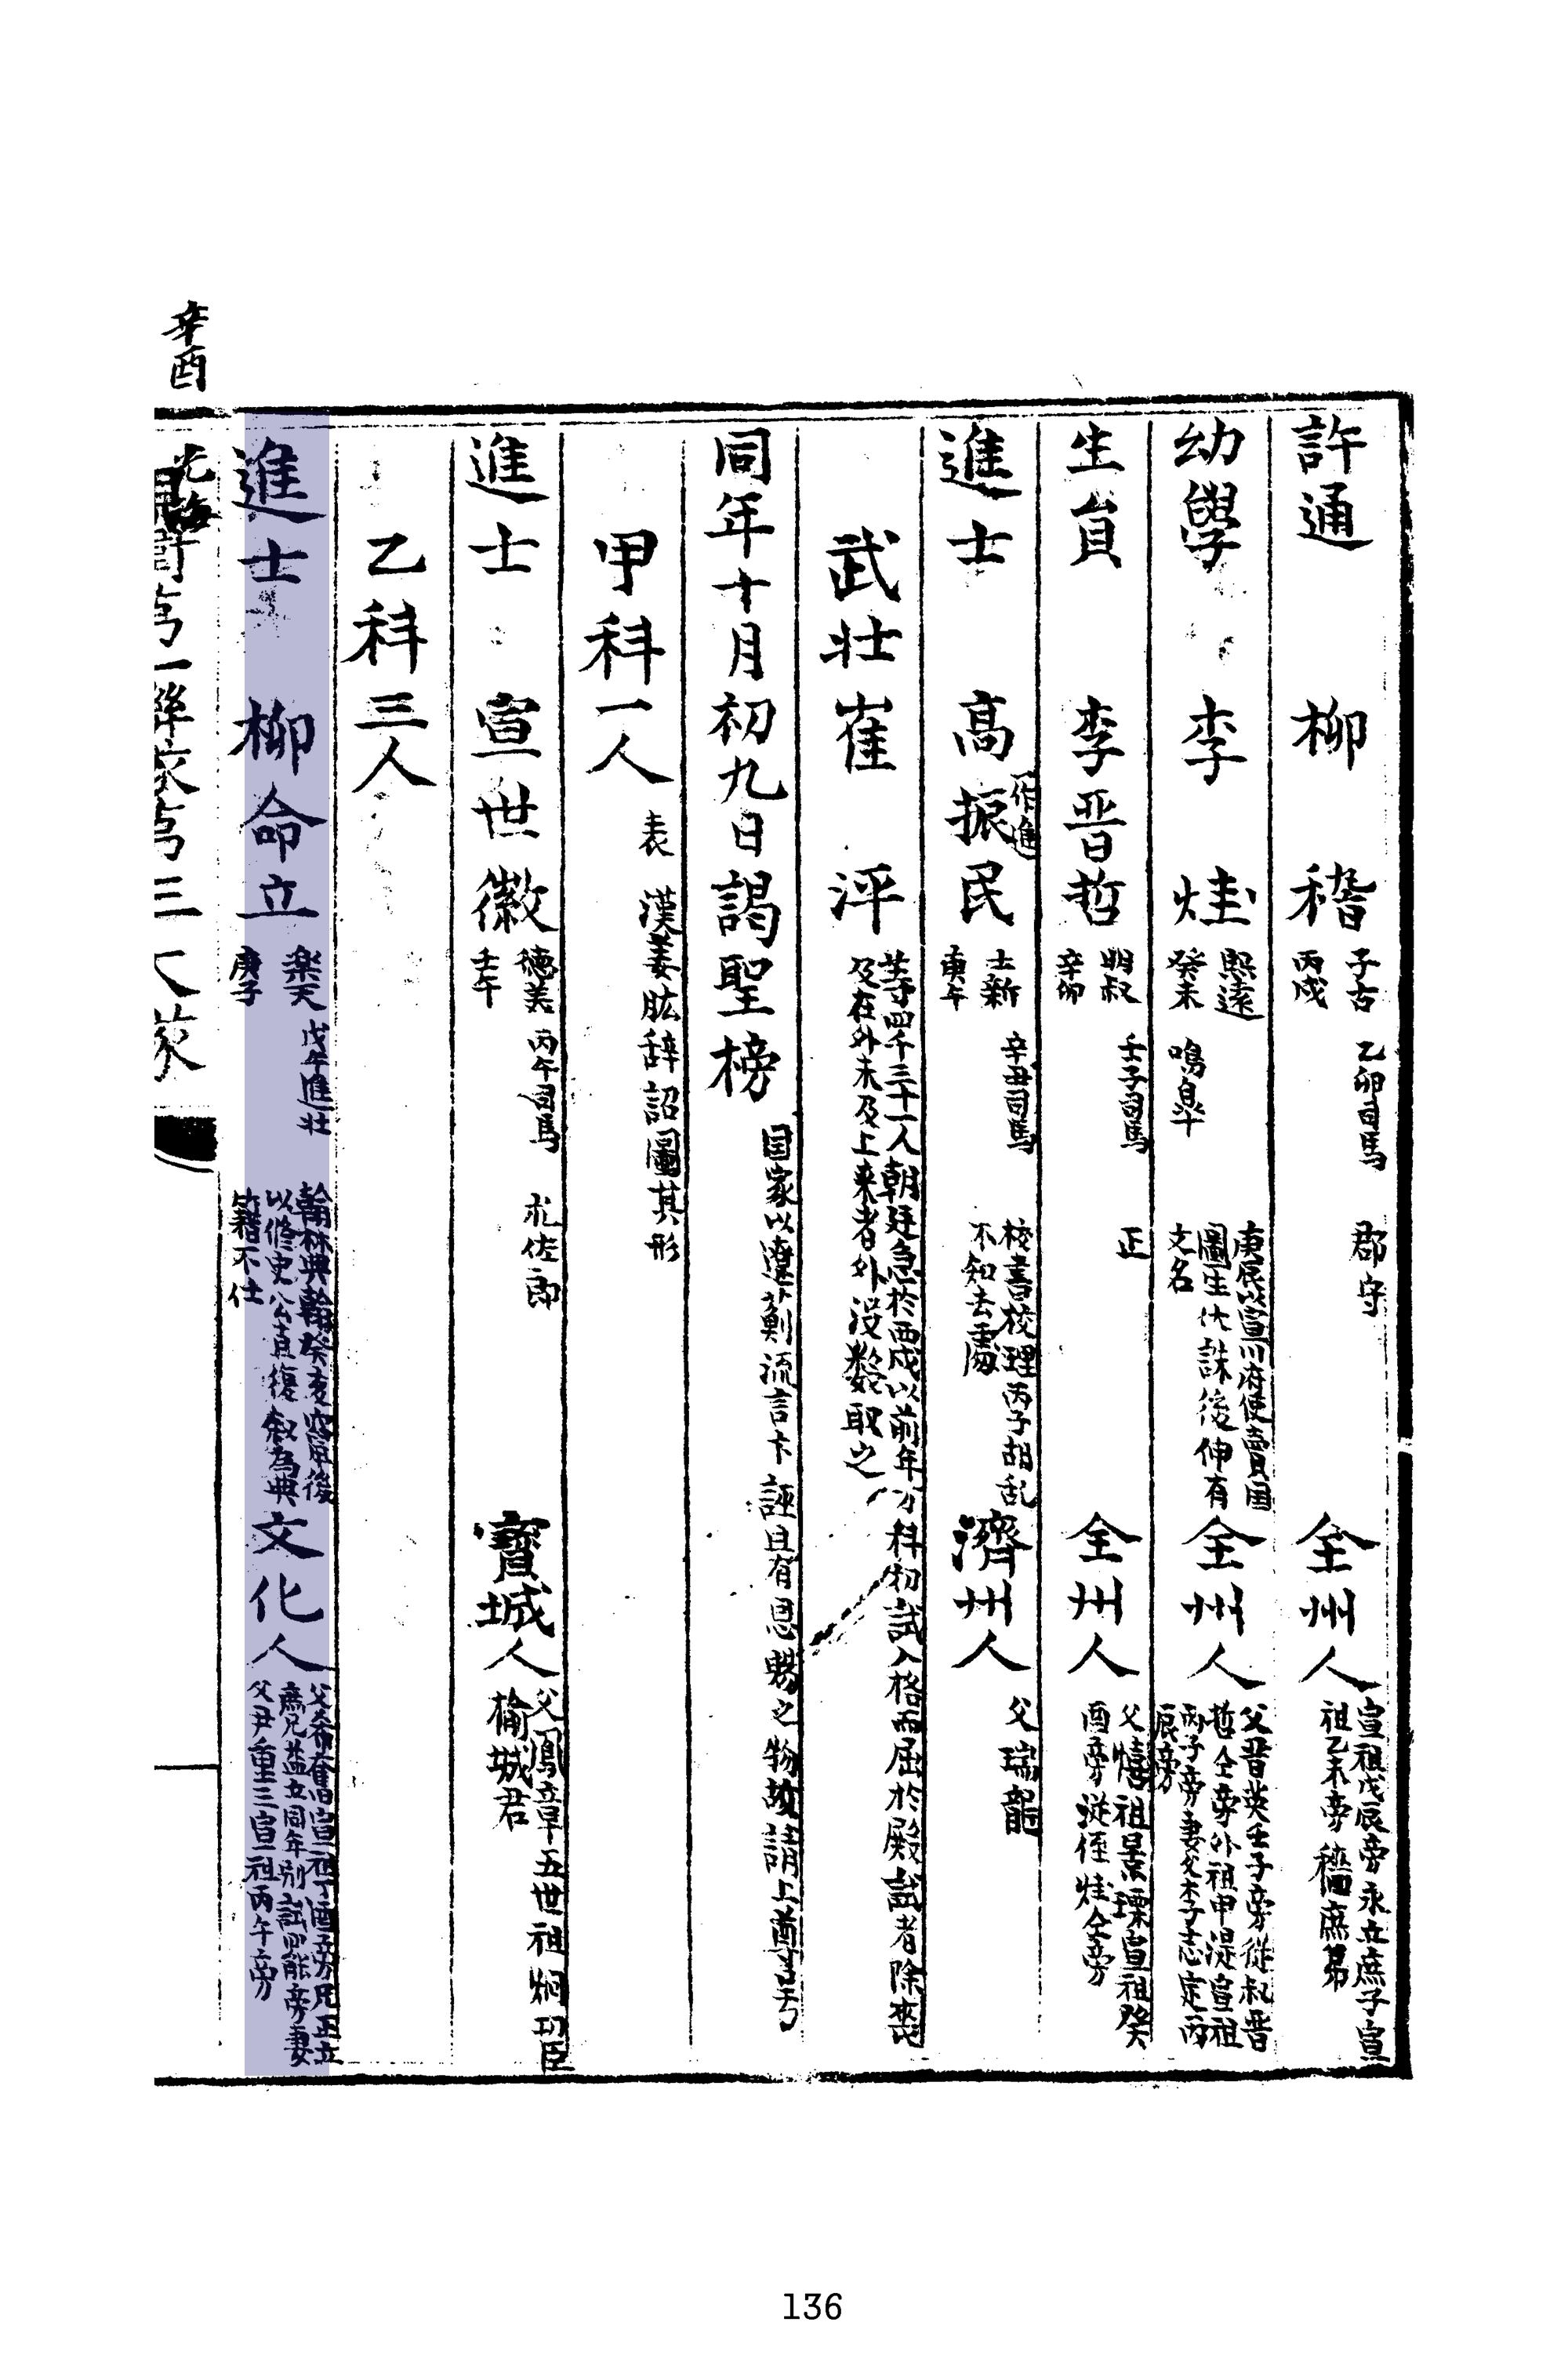 許通 柳稽 子古 丙戌 乙卯司馬 郡守 全州人 宣祖戊辰旁永立庶子宣祖乙未旁穡庶弟
幼學 李烓 熙遠 癸未 鳴皐 庚辰以宣川府使賣国圖生伏誅後伸有文名 全州人 父晋英壬子旁從叔晋哲仝旁外祖申湜宣祖丙子旁妻父李志定丙辰旁
生員 李晋哲 明叔 辛卯 壬子司馬 正 全州人 父憘祖景祖癸酉旁從侄烓仝旁
進士 高振民 作進 士新 庚午 辛丑司馬 校書校理丙子胡乱不知去處 濟州人 父瑞龍
武壯崔泙 等四千三十一人朝廷急於西戍以前年方科初試入格而屈於殿試者除喪及在外未及上来者外没数取之
同年十月初九日謁聖榜 国家以遼薊流言卞誣且有恩賜之物故請上尊号
甲科一人 表 漢姜肱辞詔圖其形
進士 宣世徽 德美 壬午 丙午司馬 礼佐郎 寶城人 父鳳章五世祖炯功臣楡城君
乙科三人
進士 柳命立 楽天 庚子 戊午進壯 翰林典翰癸亥竄後以修史公直復叙為典籍不仕 文化人 父希奮宣祖丁酉旁兄正立庶兄益立同年别試能旁妻父尹重三宣祖丙午旁
辛酉
光海